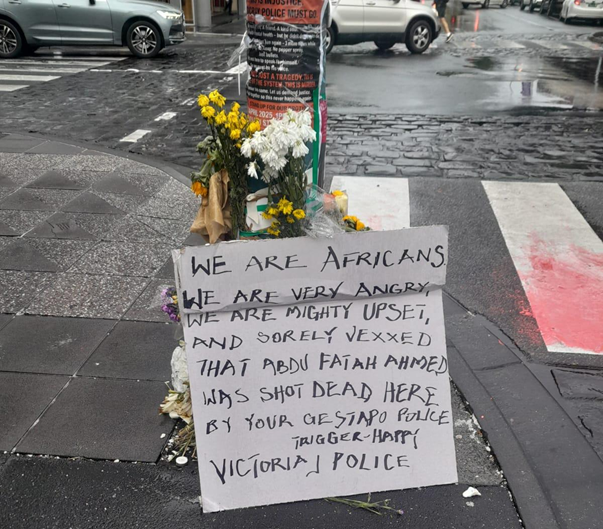 INJUSTICE
POLICE MUST GO
JUST A TRAGEDY.
WE ARE AFRICANS.
WE ARE VERY ANGRY,
WE ARE MIGHTY UPSET,
AND SORELY VEXXED
THAT ABDU FATAH AHMED
WAS SHOT DEAD HERE
BY YOUR GESTAPO POLICE
TRIGGER-HAPPY
VICTORIA POLICE